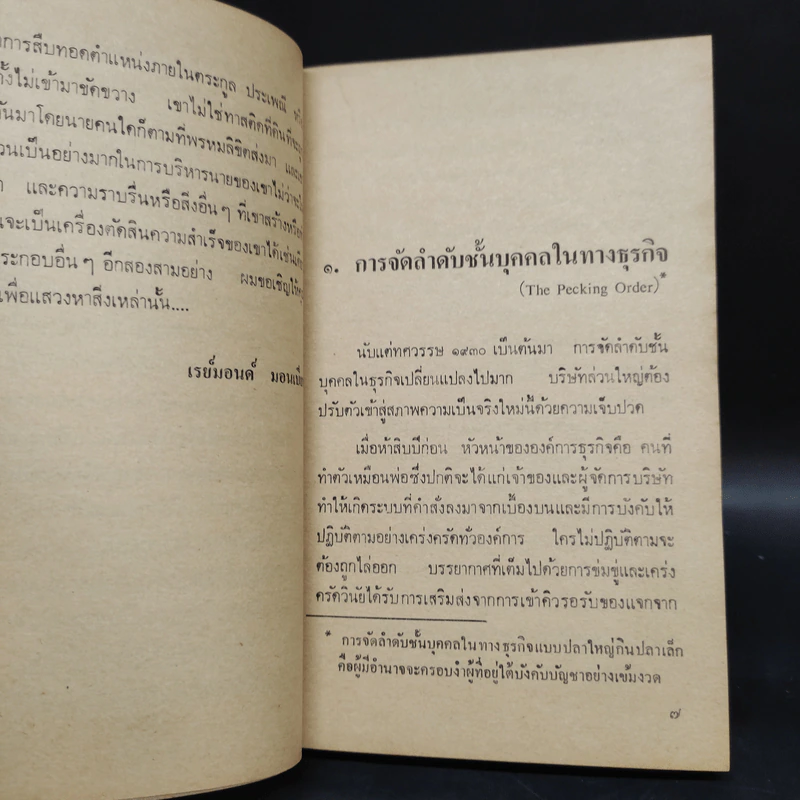 การสืบทอดตำแหน่งภายในตระกูล ประเพณี
ไม่เข้ามาขัดขวาง เขาไม่ใช่ทาสติดที่ดินที่
มาโดยนายคนใดก็ตามที่พรหมลิขิตส่งมา
เป็นอย่างมากในการบริหารนายของเขาไม่ว่าจะ
และความราบรื่นหรือสิ่งอื่นๆ ที่เขาสร้างหรือ
จะเป็นเครื่องตัดสินความสำเร็จของเขาได้เช่น
ระกอบอื่นๆ อีกสองสามอย่าง ผมขอเชิญ
เพื่อแสวงหาสิ่งเหล่านั้น....
เรย์มอนด์
๑. การจัดลำดับชั้นบุคคลในทางธุรกิจ
(The Pecking Order)*
นับแต่ทศวรรษ ๑๙๓๐ เป็นต้นมา การจัดลำดับชั้น
บุคคลในธุรกิจเปลี่ยนแปลงไปมาก บริษัทส่วนใหญ่ต้อง
ปรับตัวเข้าสู่สภาพความเป็นจริงใหม่นี้ด้วยความเจ็บปวด
เมื่อห้าสิบปีก่อน หัวหน้าขององค์การธุรกิจคือ คนที่
ทำตัวเหมือนพ่อซึ่งปกติจะได้แก่เจ้าของและผู้จัดการบริษัท
ทำให้เกิดระบบที่คำสั่งลงมาจากเบื้องบนและมีการบังคับให้
ปฏิบัติตามอย่างเคร่งครัดทั่วองค์การ ใครไม่ปฏิบัติตามจะ
ต้องถูกไล่ออก บรรยากาศที่เต็มไปด้วยการข่มขู่และเคร่ง
ครัดวินัยได้รับการเสริมส่งจากการเข้าคิวรอรับของแจกจาก
* การจัดลำดับชั้นบุคคลในทางธุรกิจแบบปลาใหญ่กินปลาเล็ก
คือผู้มีอำนาจจะครอบงำผู้ที่อยู่ใต้บังคับบัญชาอย่างเข้มงวด
๗